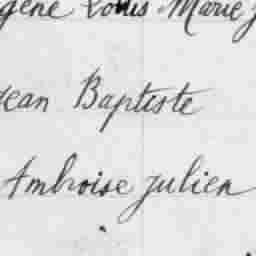 gène Louis Marie J
Jean Baptiste
Ambroise Julien